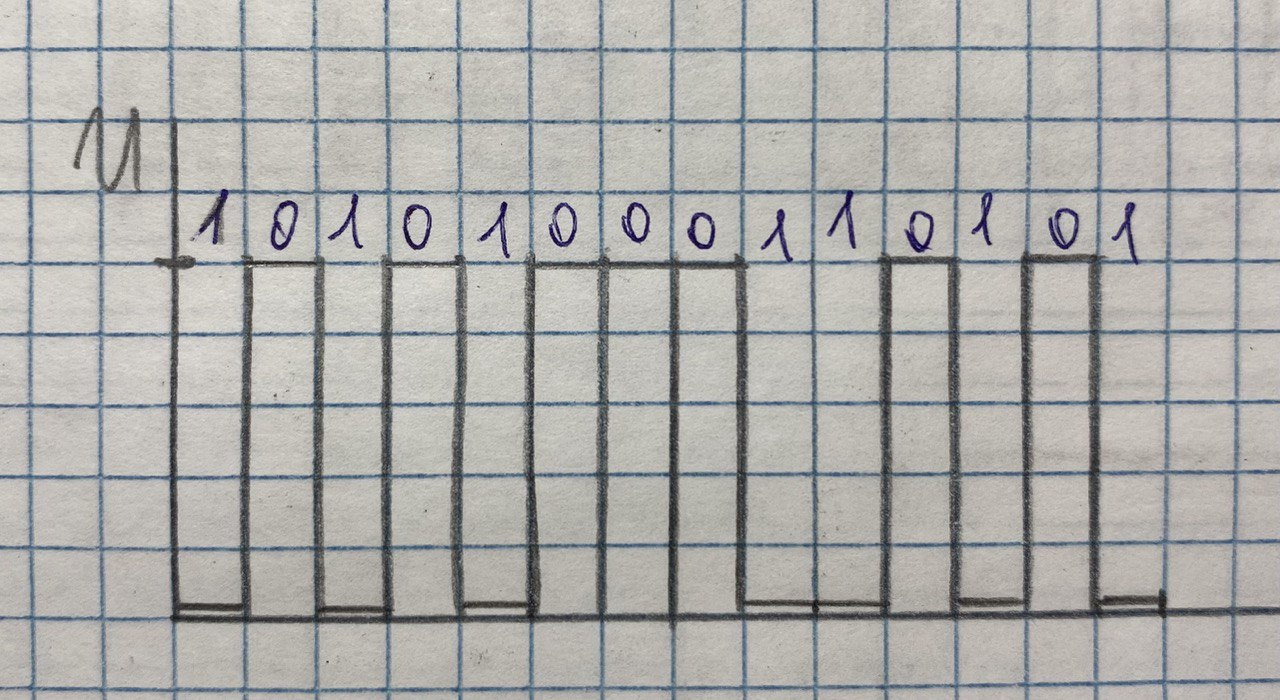 U
1 0 1 0 1 0 0 0 1 1 0 1 0 1